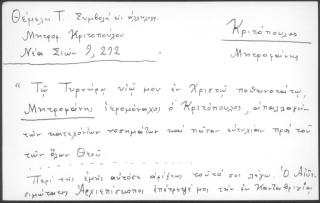 Θέμελη Τ. Συμβολὴ εἰς ἀλληλογρ.
Μητροφ. Κριτοπούλου
Νέα Σιών 9, 292
Κριτόπουλος
Μητροφάνης
"Τῷ Τυρνήρῳ υἱῷ μου ἐν Χριστῷ ποθεινοτάτῳ,
Μητροφάνης ἱερομόναχος ὁ Κριτόπουλος, ἀπαλλαγὴν
τῶν κατεχόντων νοσημάτων καὶ πᾶσαν εὐτυχίαν παρὰ τοῦ
τῶν ὅλων Θεοῦ.
Περὶ τῆς ἐμῆς αὐτόσε ἀφίξεως τοῦτό σοι λέγω. Ὁ Αἰδε-
σιμώτατος Ἀρχιεπίσκοπος ἐπέτρεψέ μοι τὴν ἐν Κανταβριγίᾳ